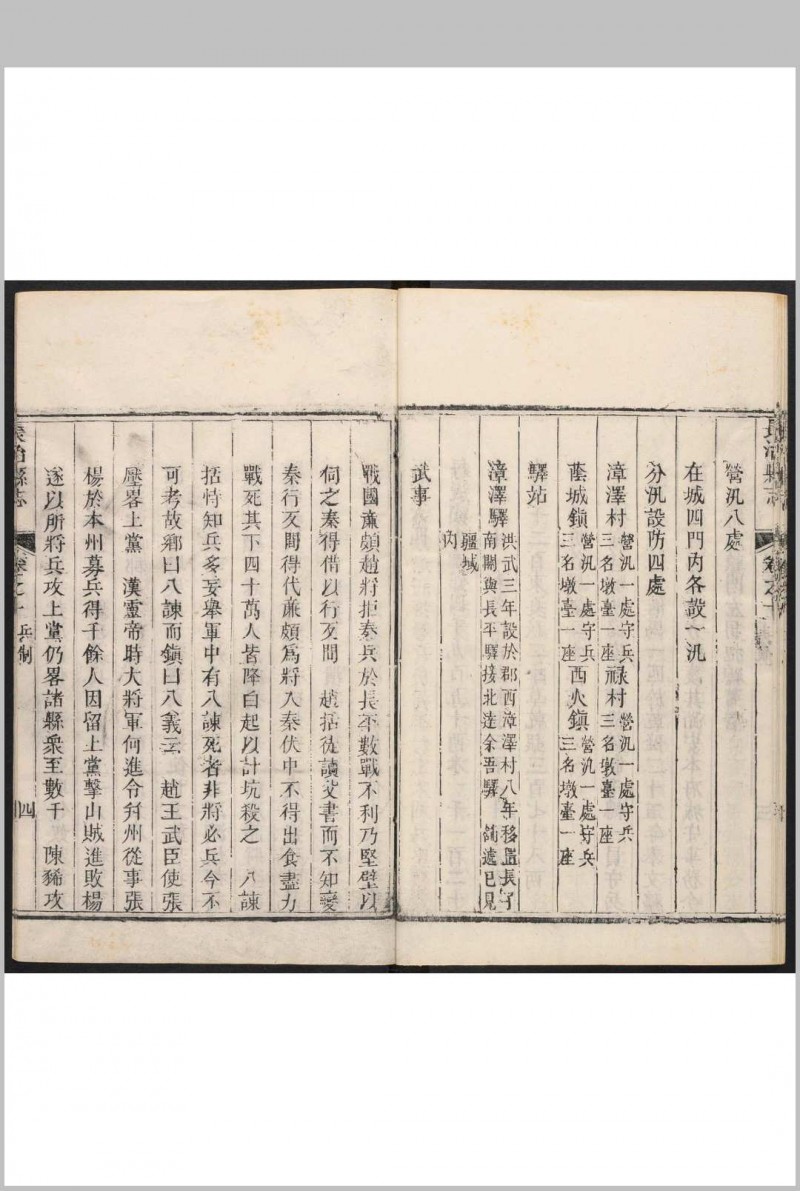 營汛八處
在城四門內各設一汛
分汛設防四處
漳澤村 營汛一處守兵三名墩臺一座 祿村 營汛一處守兵三名墩臺一座
蔭城鎮 營汛一處守兵三名墩臺一座 西火鎮 營汛一處守兵三名墩臺一座
驛站
漳澤驛 洪武三年設於郡西漳澤村八年移置長子
南關與長平驛接北達余吾驛 已見
疆域
內
武事
戰國廉頗趙將拒秦兵於長平數戰不利乃堅壁以
伺之秦得借以行反間 趙括徒讀父書而不知變
秦行反間得代廉頗為將入秦伏中不得出食盡力
戰死其下四十萬人皆降白起以計坑殺之 八諫
括恃知兵多妄舉軍中有八諫死者非將必兵今不
可考故鄉曰八諫而鎮曰八義云 趙王武臣使張
壓畧上黨 漢靈帝時大將軍何進令幷州從事張
楊於本州募兵得千餘人因留上黨擊山賊進敗楊
遂以所將兵攻上黨仍畧諸縣衆至數千 陳豨攻
長治縣志 卷之十 兵制 四